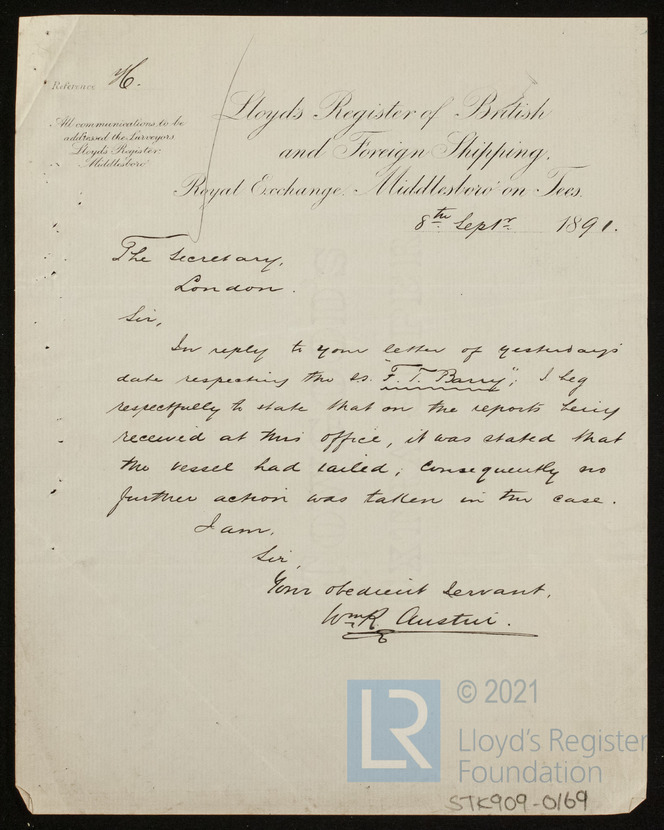 Reference H.
All communications to be
addressed the Surveyors
Lloyd's Register
Middlesbro'
Lloyd's Register of British
and Foreign Shipping.
Royal Exchange. Middlesbro' on Tees.
8th Septr. 1891.
The Secretary,
London.
Sir,
In reply to your letter of yesterday's
date respecting the ss. "F. T. Barry"; I beg
respectfully to state that on the reports being
received at this office, it was stated that
the vessel had sailed; consequently no
further action was taken in the case.
I am,
Sir,
Your obedient Servant,
Wm. R. Austin.
LR
© 2021
Lloyd's Register
Foundation
STK909-0169